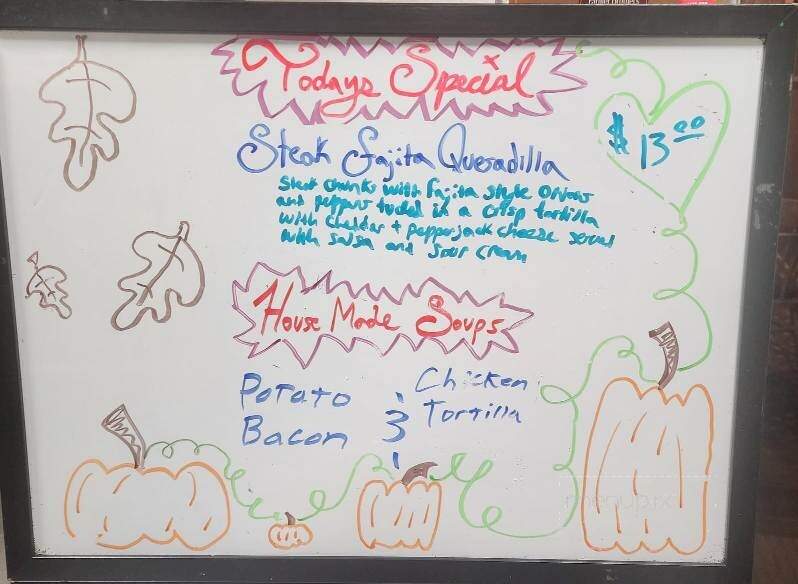 Todays Special
$13.00
Steak Fajita Quesadilla
Steak chunks with fajita style onions
and peppers tucked in a crisp tortilla
with cheddar + pepperjack cheese served
with salsa and sour cream
House Made Soups
Potato Bacon
&
Chicken Tortilla
menupix